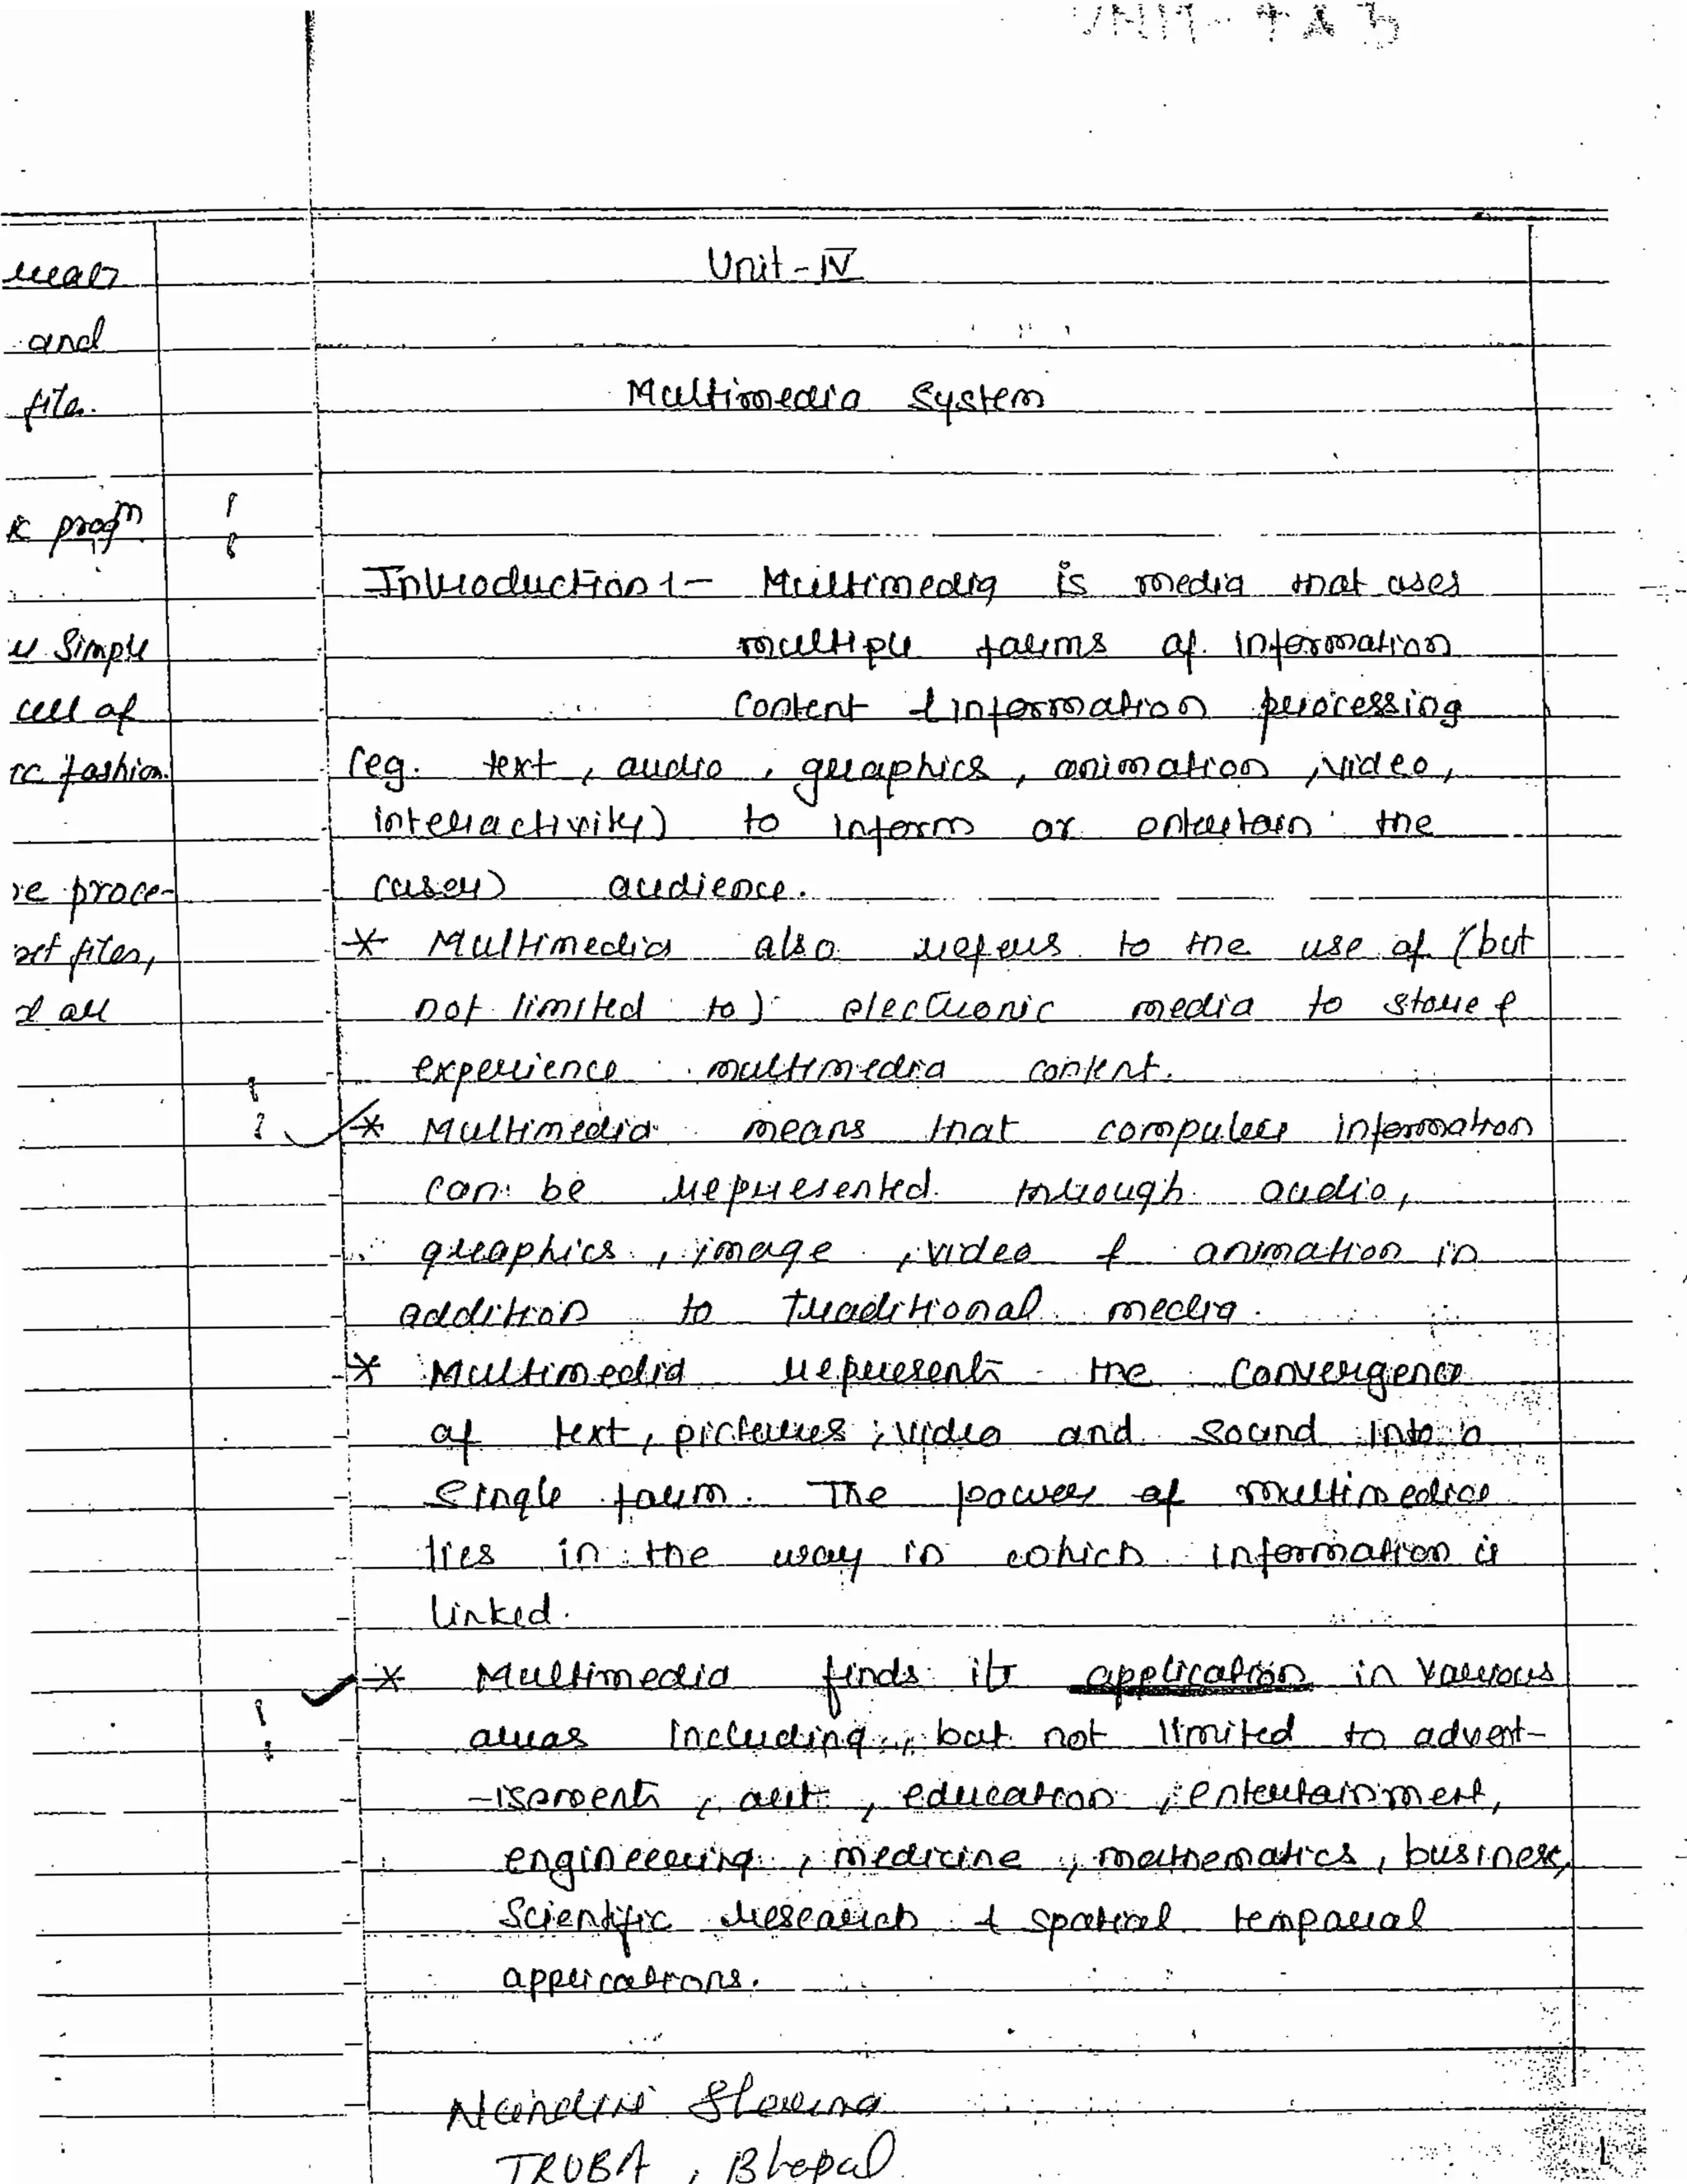 UNIT - 4 & 5
Unit - IV
Multimedia System
Introduction :- Multimedia is media that uses
multiple forms of information
content & information processing
(eg. text, audio, graphics, animation, video,
interactivity) to inform or entertain the
(user) audience.
* Multimedia also refers to the use of (but
not limited to) electronic media to store &
experience multimedia content.
* Multimedia means that computer information
can be represented through audio,
graphics, image, video & animation in
addition to traditional media.
* Multimedia represents the convergence
of text, pictures, video and sound into a
single form. The power of multimedia
lies in the way in which information is
linked.
* Multimedia finds its application in various
areas including, but not limited to advert-
-isements, art, education, entertainment,
engineering, medicine, mathematics, business,
Scientific research & spatial temporal
applications.
TRUBA, Bhopal
1
and
file.
progm
Simple
cell of
fashion.
proce-
files,
all